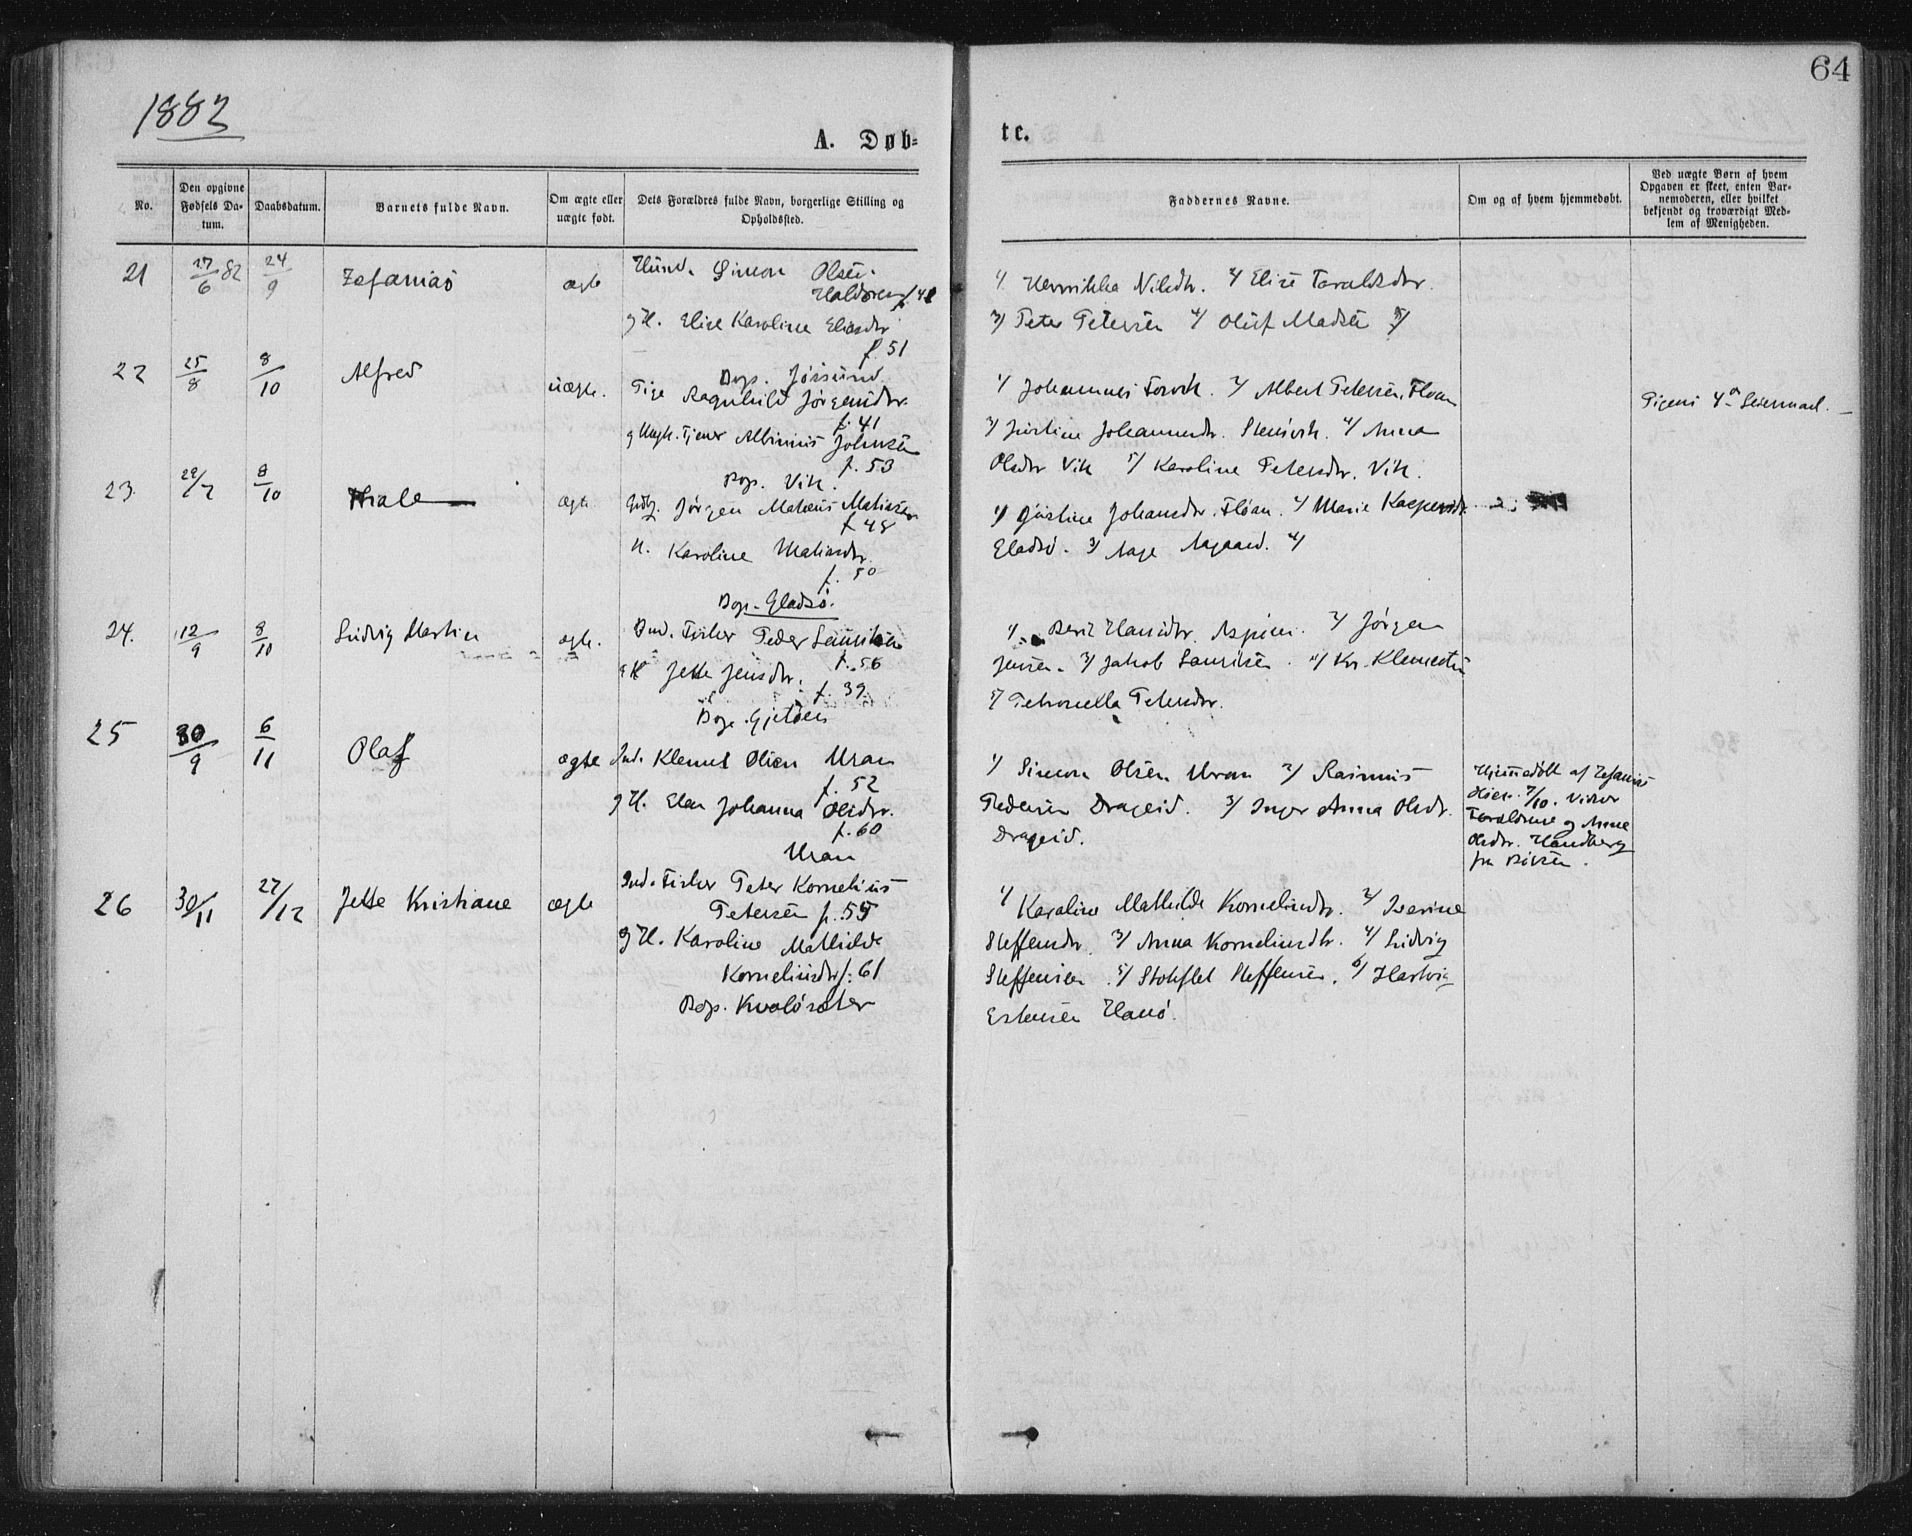 64
1882
A. Døb-
te.
No.
Den opgivne Fødsels Da-
tum.
Daabsdatum.
Barnets fulde Navn.
Om ægte eller
uægte født.
Dets Forældres fulde Navn, borgerlige Stilling og
Opholdssted.
Faddernes Navne.
Om og af hvem hjemmedøbt.
Ved uægte Børn af hvem
Opgaven er skeet, enten Bar-
nemoderen, eller hvilket
bekjendt og troværdigt Med-
lem af Menigheden.
21 27/6 82 24/9 Zefanias ægte
Simon Olsen
f 48
g H. Elise Karoline Eliasdtr
f. 51
Bop. Jøssund
1/ Henrikka Nilsdtr. 2/ Elise Taraldsdtr.
3/ Peter Petersen 4/ Oluf Madsen 5/
22 25/8 8/10 Alfred uægte.
Pige Ragnhild Jørgensdtr.
f. 41
g Ungk. Tjener Albinus Johnsen
f. 53
Bop. Vik.
1/ Johannes 2/ Albert Petersen, Floan
3/ Justine Johannesdtr. 4/ Anna
Olsdtr Vik 5/ Karoline Petersdtr. Vik.
Pigens 4de Leiermaal.
23. 29/7 8/10 Hrale ægte
Gdbr. Jørgen Mateus Matiasen
f 48
H. Karoline Matiasdtr.
f. 50
Bop. Gladsø.
1/ Justine Johansdtr. Floan. 2/ Marie Kaspersdtr.
Gladsø. 3/ Aage Aagaard. 4/
24. 12/9 8/10 Ludvig Martin ægte.
Ind. Fisker Peder Lauritsen
f. 56
g H Jette Jensdtr.
f. 39
Bop. Gjetøen
1/ Berit Hansdtr. 2/ Jørgen
Jensen. 3/ Jakob Lauritsen. 4/ Kr. Klemetsen
5/ Petronella Petersdtr.
25 30/9 6/11 Olaf ægte
Ind. Klemet Olsen Uran
f. 52
g H. Elen Johanna Olsdtr.
f. 60
Uran
1/ Simon Olsen Uran 2/ Rasmus
Pedersen Drageid. 3/ Inger Anna Olsdtr.
Drageid.
Hjemmedøbt af Zefanias
7/10.
og Anne
Olsdtr. Handberg
fra
26 30/11 27/12 Jette Kristiane ægte
Ind. Fisker Peter Kornelius
Petersen f. 55
g H. Karoline Mathilde
Korneliusdtr f. 61
Bop. Kvaløsæter
1/ Karoline Mathilde Korneliusdtr. 2/ Iverine
Steffensdtr. 3/ Anna Korneliusdtr. 4/ Ludvig
Steffensen. 5/ Stokflet Steffensen. 6/ Hartvig
Estensen Hanø.